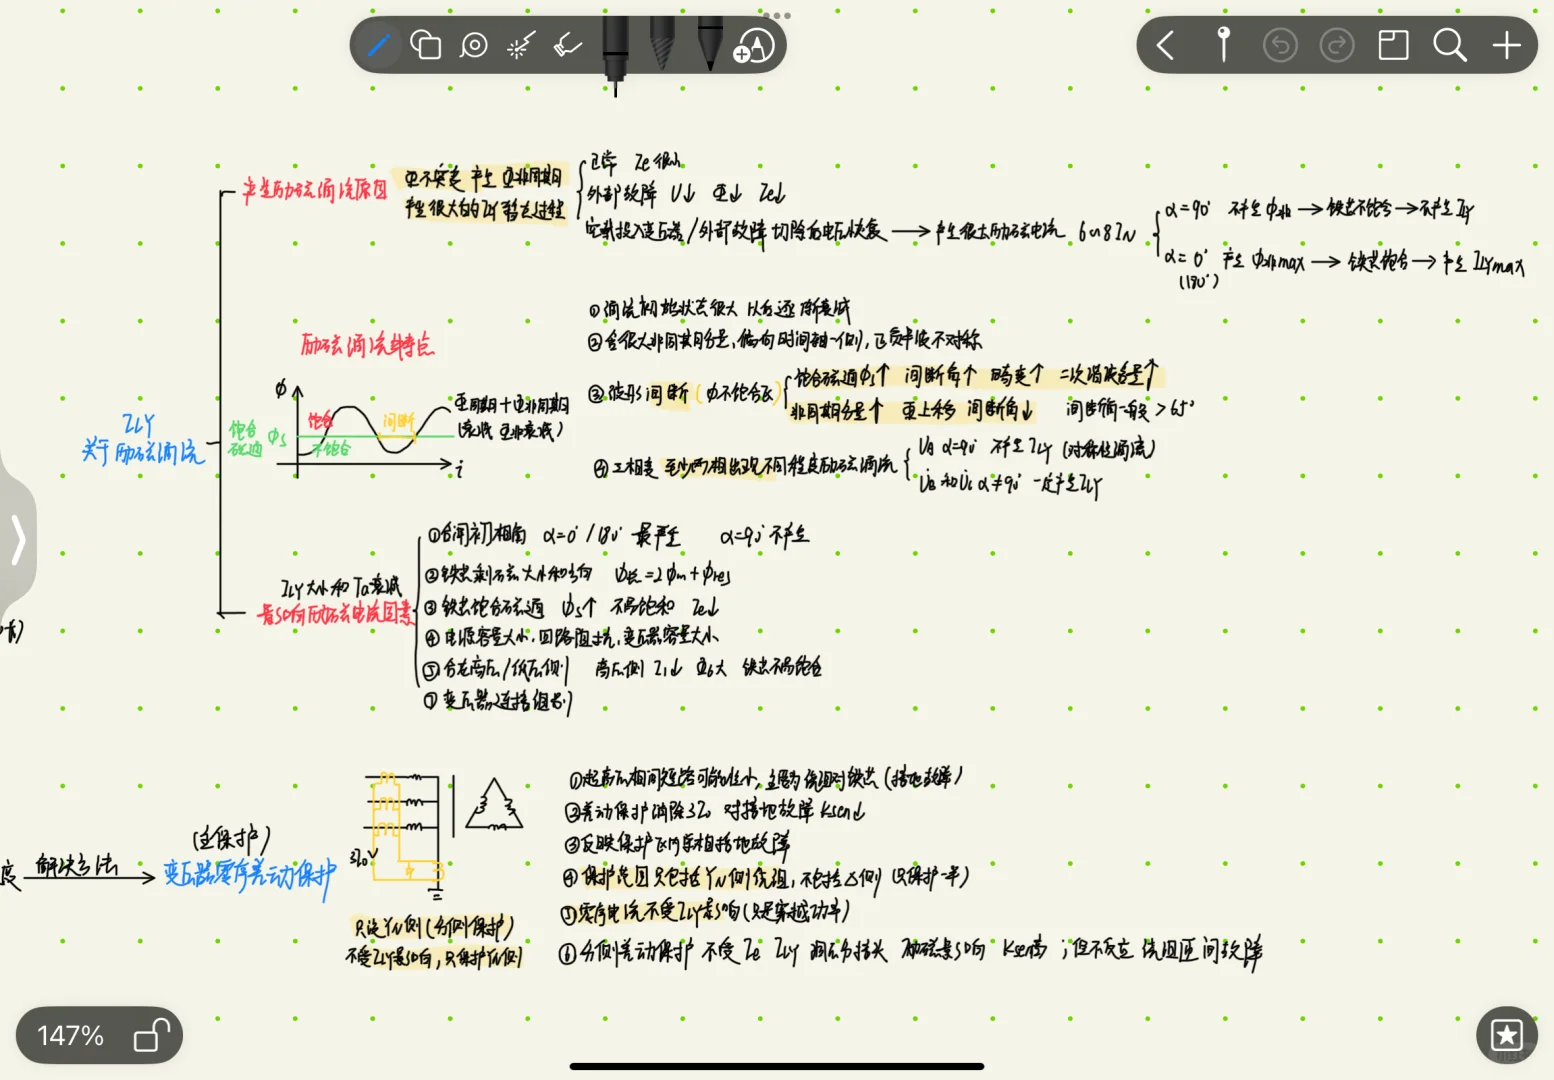 产生励磁涌流原因
Φ不突变 产生 Φ非周期
产生很大的ILY暂态过程
正常 Ie很小
外部故障 U↓ Φ↓ Ie↓
空载投入变压器/外部故障切除后电压恢复 → 产生很大励磁电流 6~8IN
α=90° 不产生Φ非 → 铁芯不饱合 → 不产生ILY
α=0° 产生Φ非max → 铁芯饱合 → 产生ILYmax
(180°)
励磁涌流特点
①涌流初始状态很大 以后逐渐衰减
②含很大非周期分量,偏向时间轴一侧,正负半波不对称
③波形间断(Φ不饱合区)
饱合磁通Φs↑ 间断角↑ 畸变↑ 二次谐波含量↑
非周期分量↑ Φ上移 间断角↓ 间断角一般>65°
④三相变 至少两相出现不同程度励磁涌流
UA α=90° 不产生ILY(对称性涌流)
UB和UC α≠90° 一定产生ILY
Φ
饱合
间断
不饱合
饱合
磁通
Φs
Φ周期+Φ非周期
(衰减 Φ非衰减)
i
ILY
关于励磁涌流
ILY大小和Ta衰减
影响励磁电流因素
①合闸初相角 α=0°/180° 最严重 α=90°不产生
②铁芯剩磁大小和方向 Φ总=2Φm+Φres
③铁芯饱合磁通 Φs↑ 不易饱和 Ie↓
④电源容量大小,回路阻抗,变压器容量大小
⑤合在高压/低压侧 高压侧 I1↓ 铁芯不易饱合
⑦变压器连接组别
解决方法
(主保护)
变压器零序差动保护
3I0
只设YN侧(分侧保护)
不受ILY影响,只保护YN侧
①超高压相间短路可能性小,主要为绕组对铁芯(接地故障)
②差动保护消除3I0 对接地故障Ksen↓
③反映保护区内单相接地故障
④保护范围只包括YN侧绕组,不包括△侧(只保护一半)
⑤零序电流不受ILY影响(只是穿越功率)
⑥分侧差动保护 不受Ie ILY 调压分接头 励磁影响 Ksen高;但不反应绕组匝间故障
147%